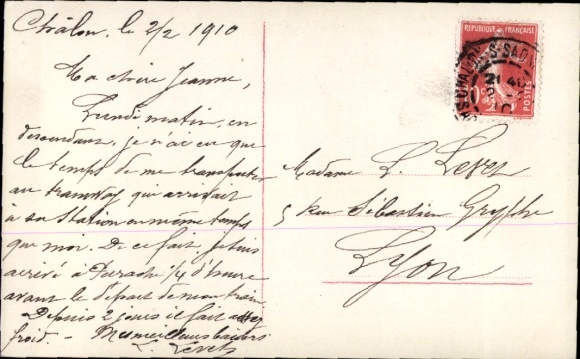 Châlon, le 2/2 1910
Ma chère Jeanne,
Lundi matin, en
descendant, je n'ai eu que
le temps de me transporter
au tramway qui arrivait
à sa station en même temps
que moi. De ce fait je suis
arrivé à Perrache 1/4 d'heure
avant le départ de mon train
Depuis 2 jours il fait assez
froid. - Mes meilleurs baisers
L. Levet
Madame L. Levet
5 Rue Sébastien Gryphe
Lyon
REPUBLIQUE FRANÇAISE
10c
POSTES
CHALON-S-SAONE